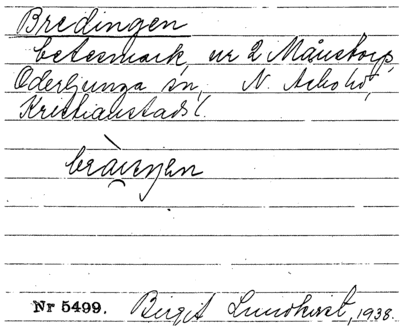 Bredingen
betesmark, nr 2 Månstorp,
Oderljunga sn, N. Åsbo hd,
Kristianstads l.
Nr 5499. Birgit Lundkvist, 1938.